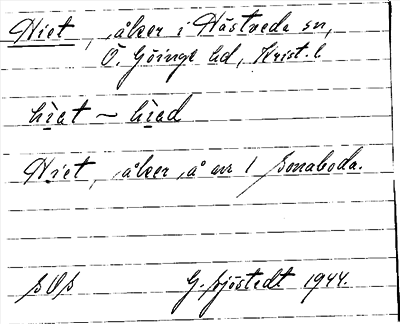 Hiet, åker i Hästveda sn,
Ö. Göinge hd, Krist. l.
hìat ~ hìad
Hiet, åker, å nr 1 Sonaboda.
G. Sjöstedt 1944.